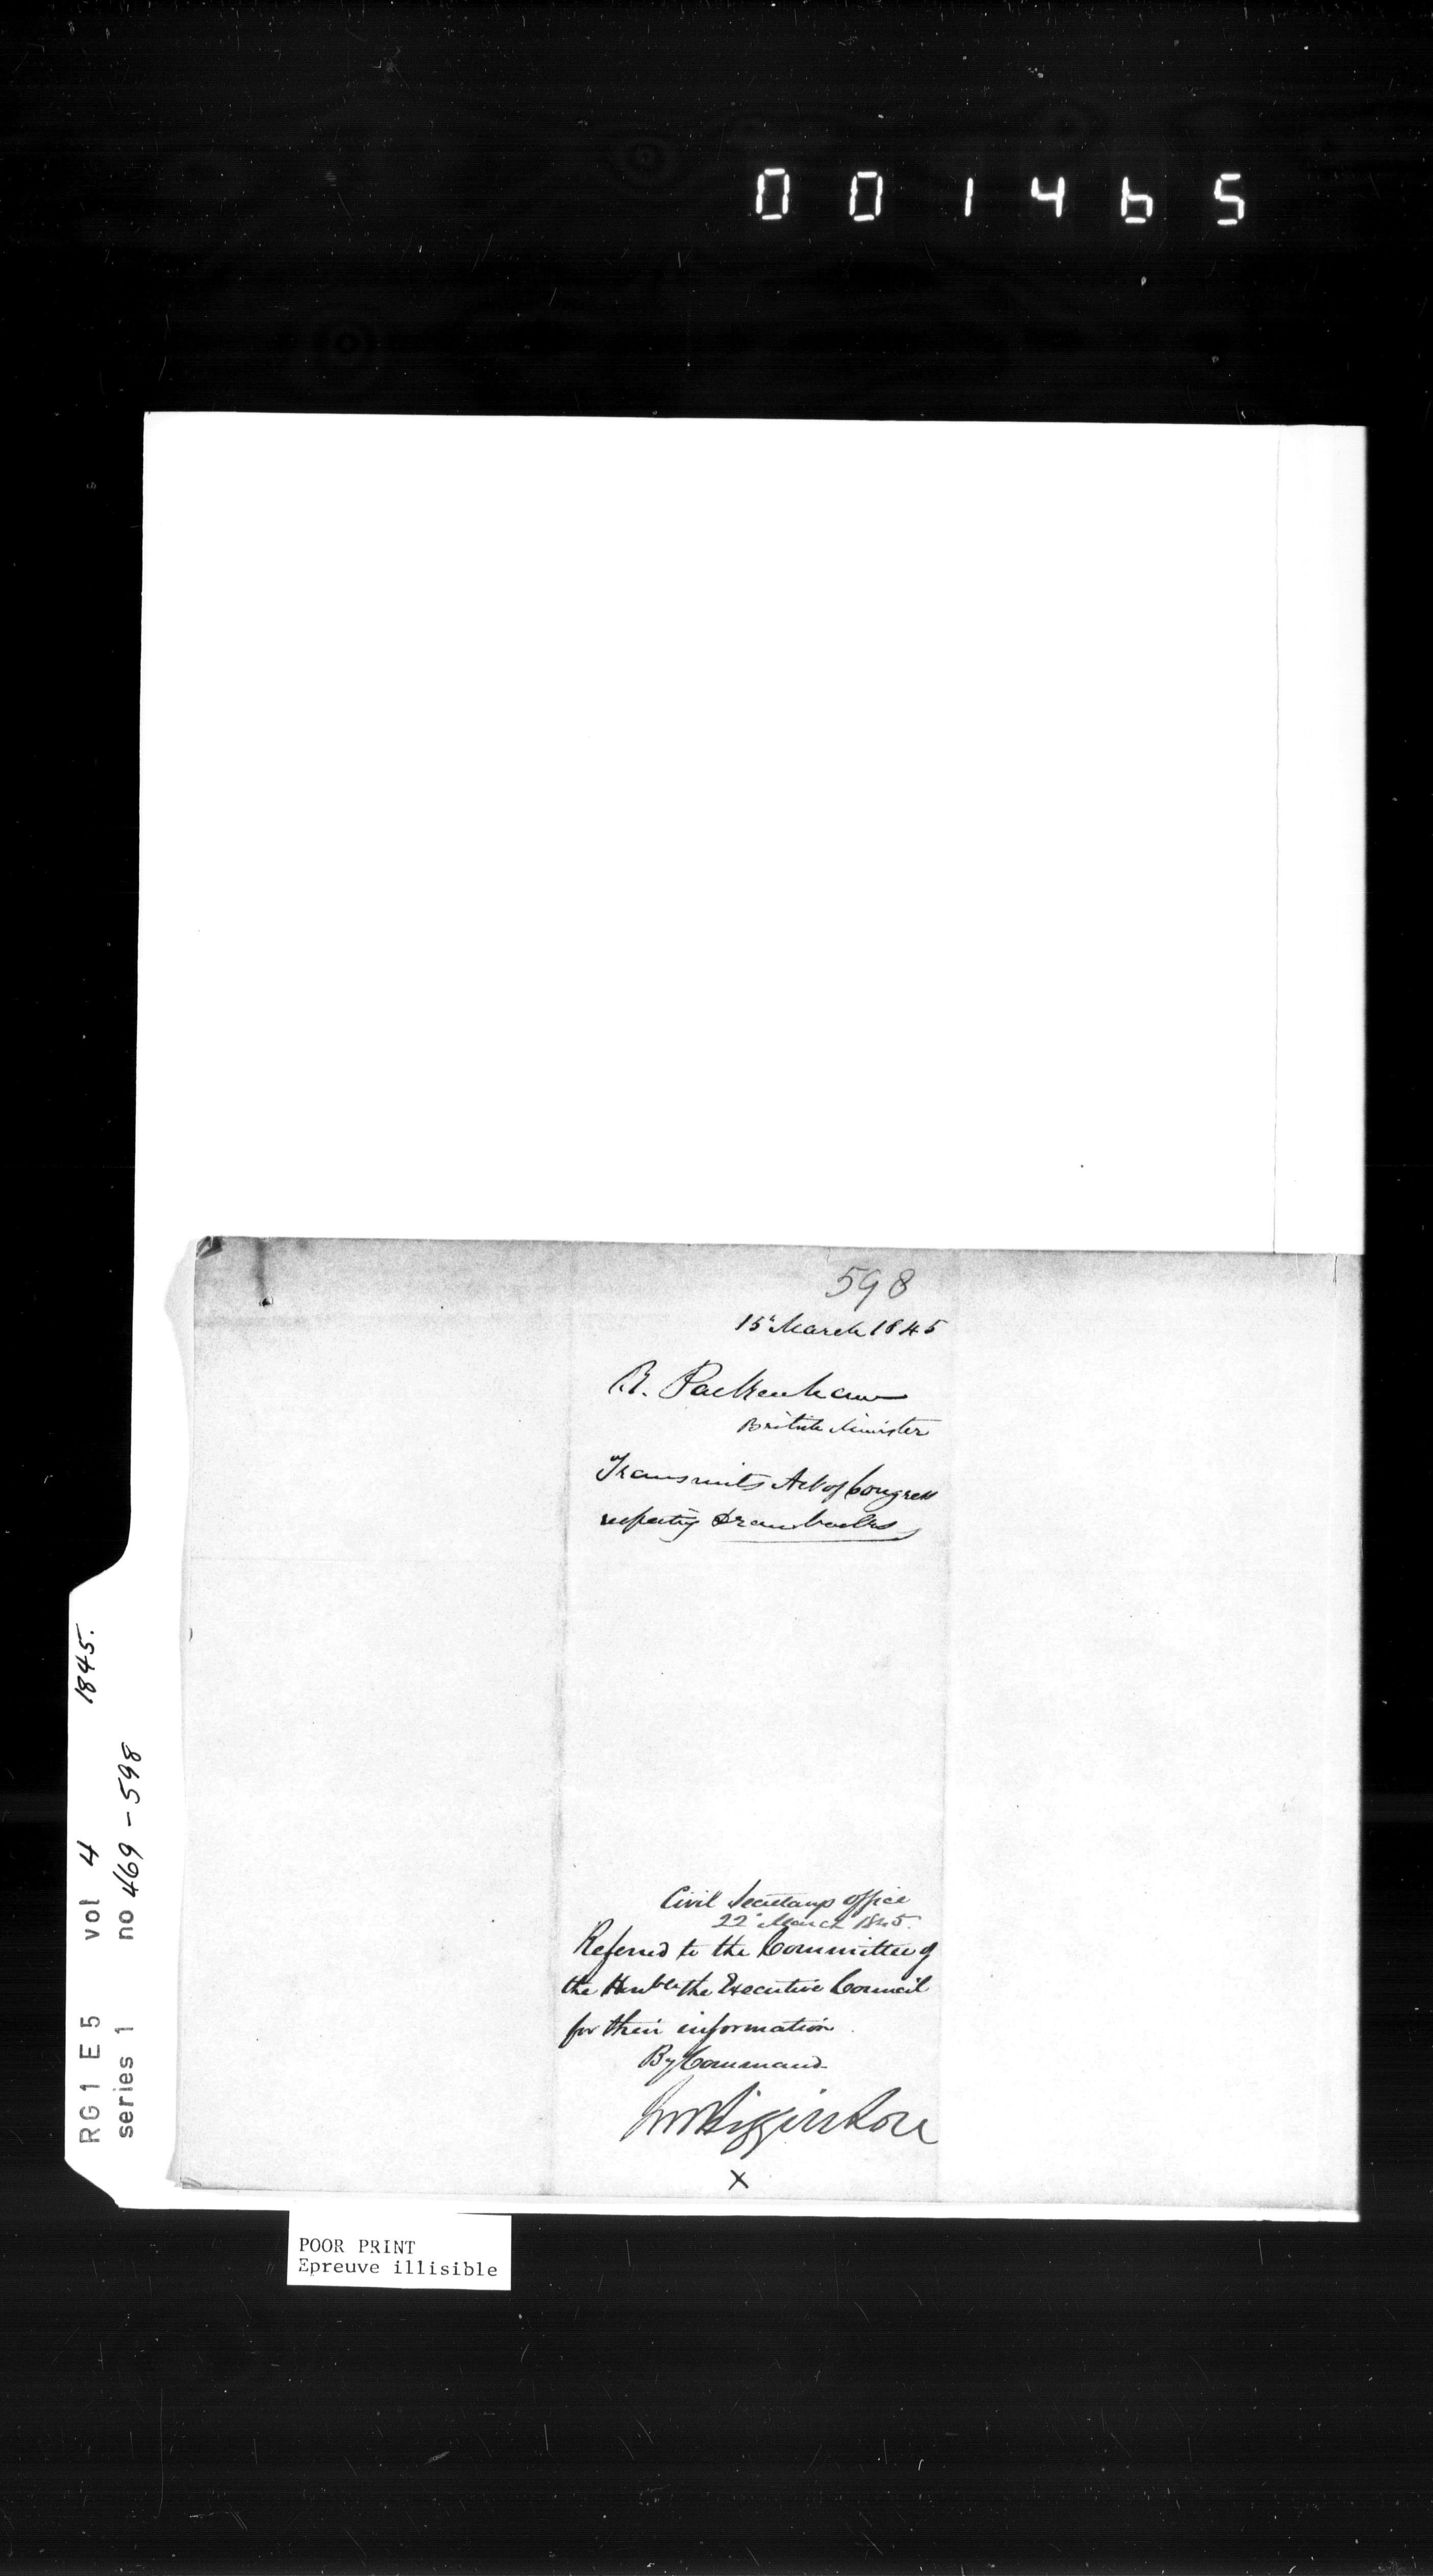 001465
598
15th March 1845
R. Packenham
British Minister
Transmits Act of Congress
respecting Drawbacks
Civil Secretarys Office
22d March 1845.
Referred to the Committee of
the Honble the Executive Council
for their information.
By Command
JMHigginson
X
RG1 E5 vol 4 1845.
series 1 no 469-598
POOR PRINT
Epreuve illisible